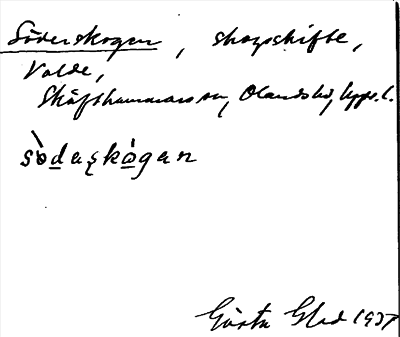 Söderskogen, skogsskifte,
Valde,
Skäfthammars sn, Olands hd, Upps. l.
sò̱da̱ʂkò̱gan
Gösta Glad 1937